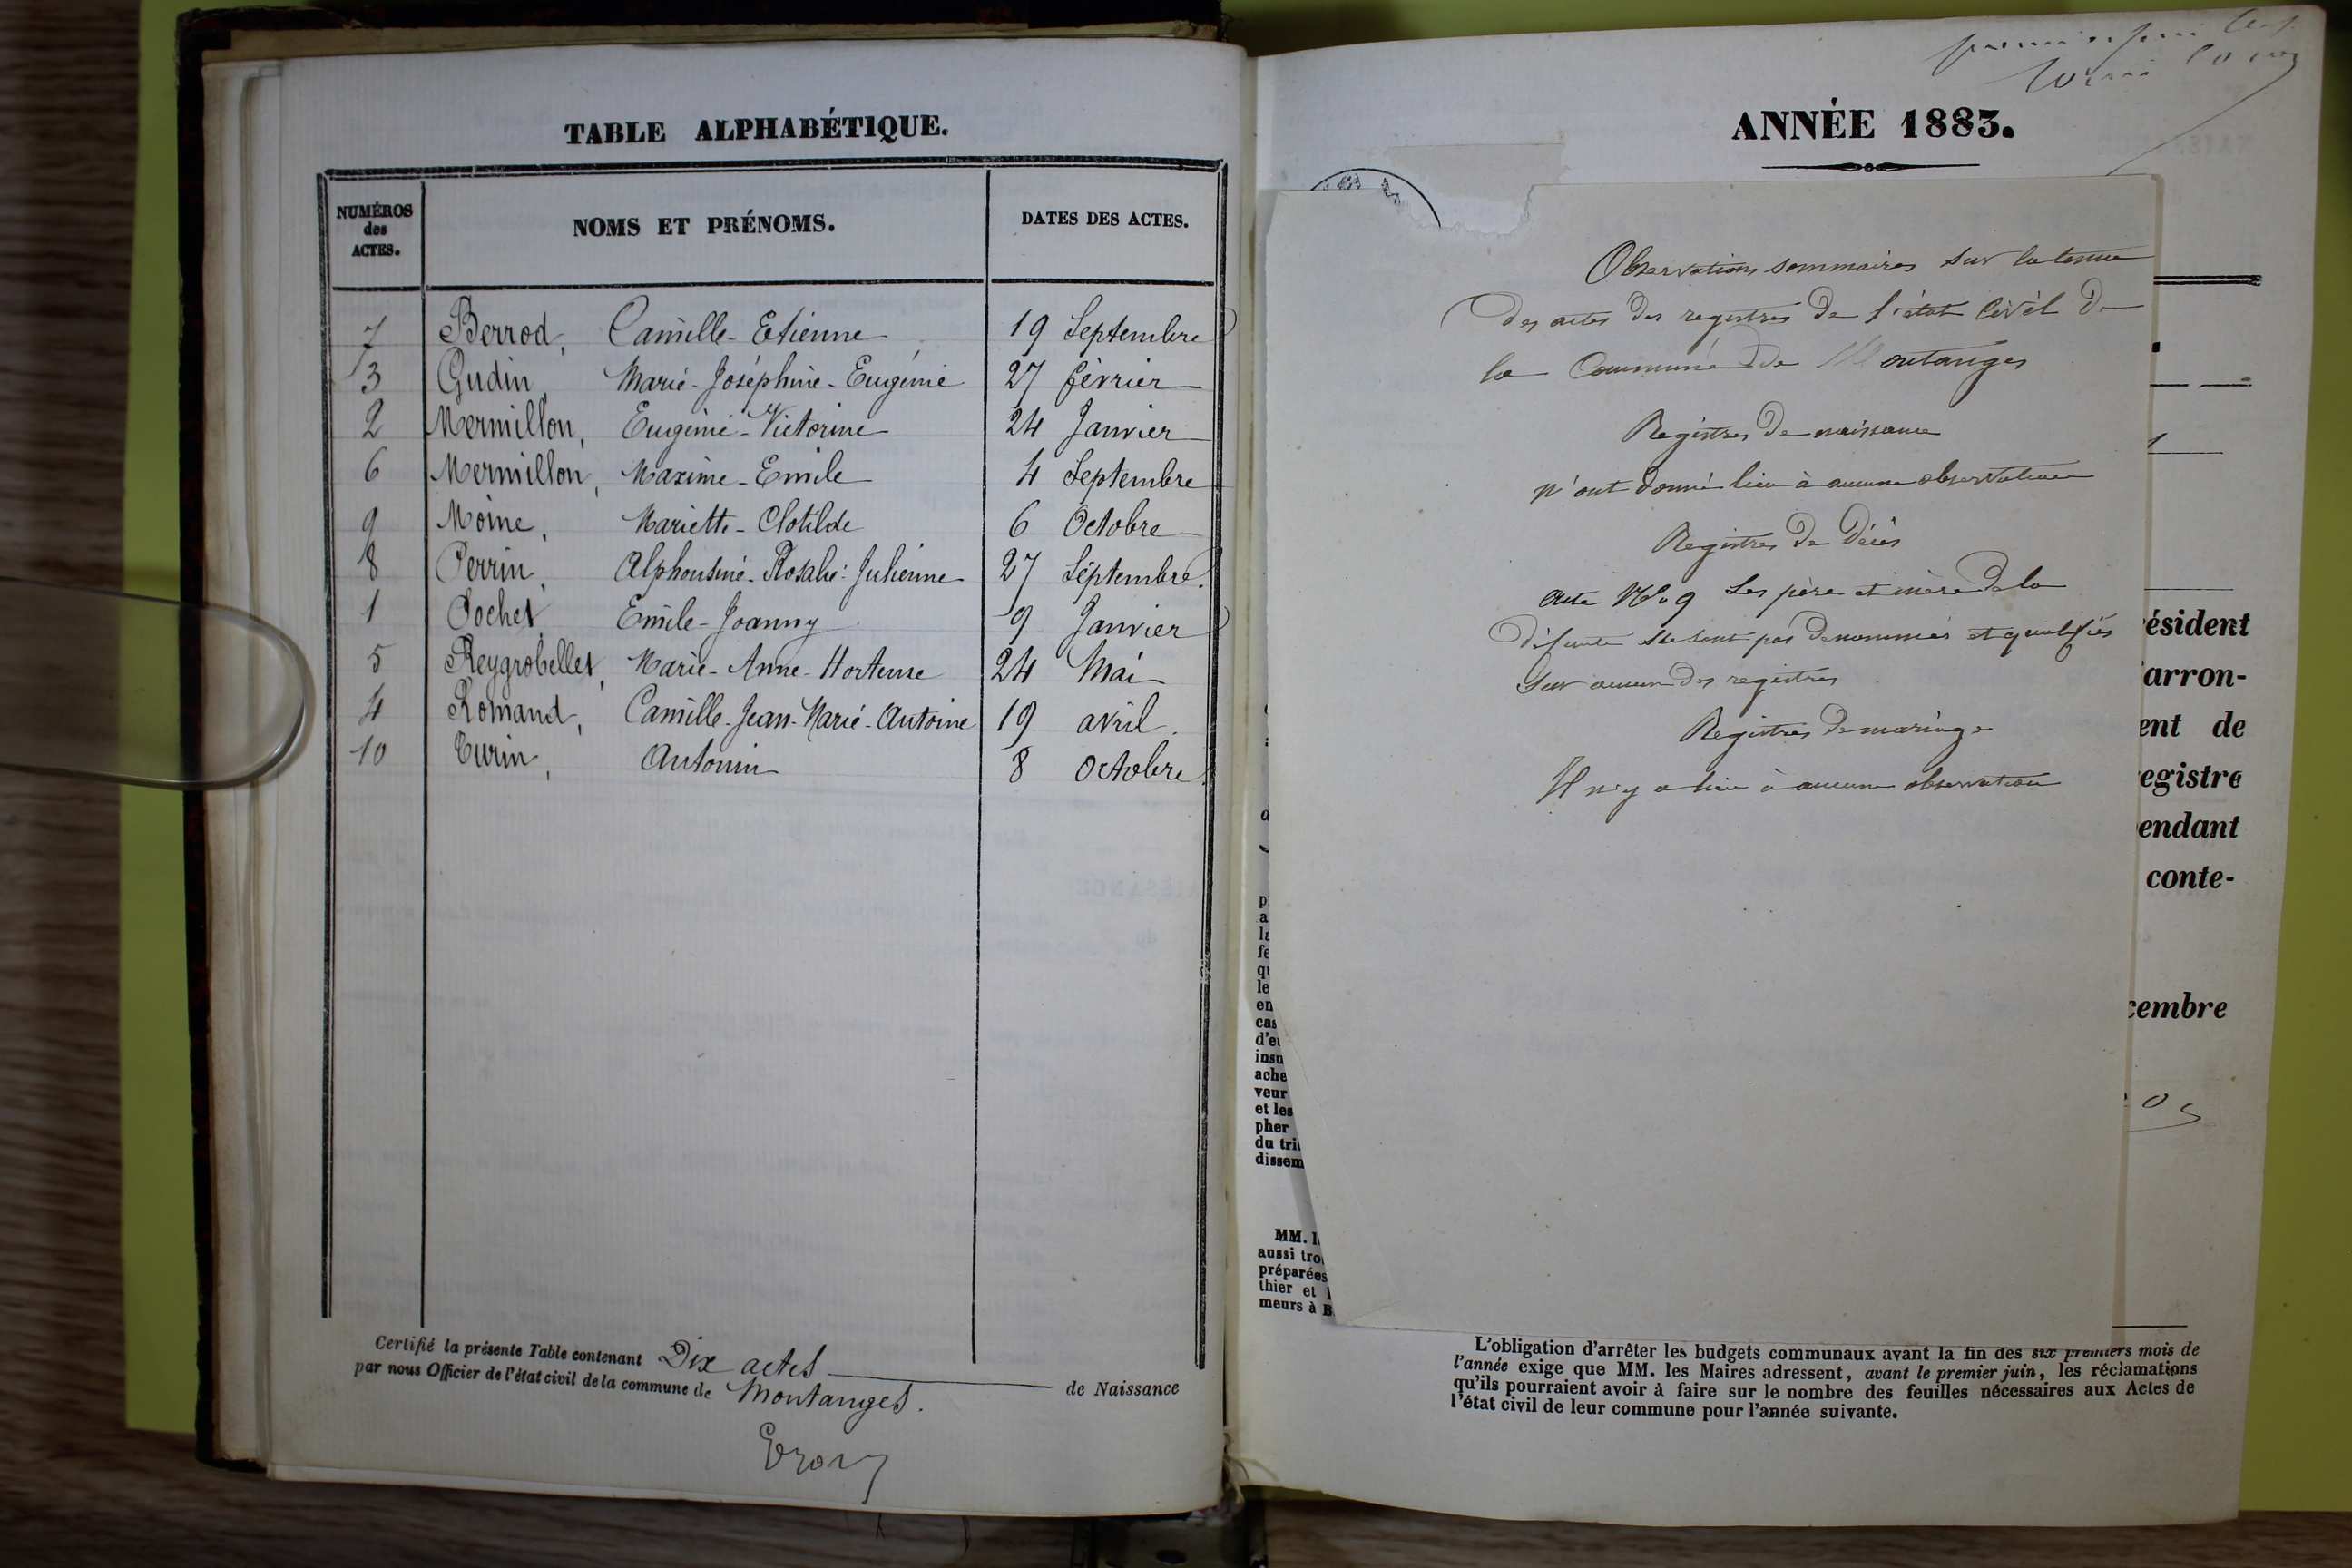 TABLE ALPHABÉTIQUE.
NUMÉROS des ACTES.
NOMS ET PRÉNOMS.
DATES DES ACTES.
7 Berrod, Camille-Etienne 19 Septembre
3 Gudin, Marie-Joséphine-Eugénie 27 février
2 Mermillon, Eugénie-Victorine 24 Janvier
6 Mermillon, Maxime-Emile 4 Septembre
9 Moine, Mariette-Clotilde 6 Octobre
8 Perrin, Alphonsine-Rosalie-Julienne 27 Septembre.
1 Pochet, Emile-Joanny 9 Janvier
5 Reygrobellet, Marie-Anne-Hortense 24 Mai
4 Romand, Camille-Jean-Marie-Antoine 19 avril.
10 Turin, Antonin 8 Octobre.
Certifié la présente Table contenant Dix actes de Naissance
par nous Officier de l'état civil de la commune de Montanges.
ANNÉE 1883.
Observations sommaires sur la tenue
des actes des registres de l'état civil de
la Commune de Montanges
Registres de naissance
n'ont donné lieu à aucune observation
Registres de Décès
Acte No 9 Les père et mère de la
défunte ne sont pas dénommés et qualifiés
sur aucun des registres
Registres de mariage
Il n'y a lieu à aucune observation
ésident
arron-
ent de
egistre
endant
conte-
cembre
la
fe
qu
le
en
cas
d'e
insu
ache
veur
et les
pher
du tri
dissem
MM. l
aussi tro
préparées
thier et
meurs à B
L'obligation d'arrêter les budgets communaux avant la fin des six premiers mois de
l'année exige que MM. les Maires adressent, avant le premier juin, les réclamations
qu'ils pourraient avoir à faire sur le nombre des feuilles nécessaires aux Actes de
l'état civil de leur commune pour l'année suivante.